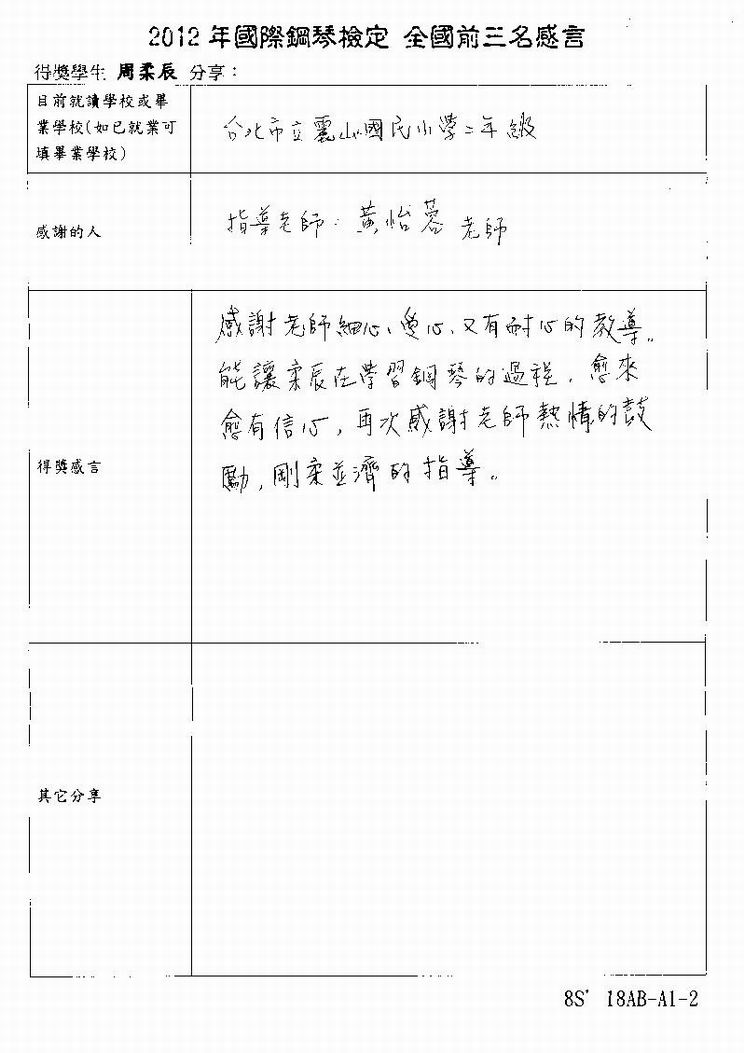 2012 年國際鋼琴檢定 全國前三名感言
得獎學生 周柔辰 分享：
目前就讀學校或畢
業學校(如已就業可
填畢業學校)
台北市立麗山國民小學二年級
感謝的人
指導老師：黃怡蓉 老師
感謝老師細心、愛心、又有耐心的教導。
能讓柔辰在學習鋼琴的過程，愈來
愈有信心，再次感謝老師熱情的鼓
勵，剛柔並濟的指導。
得獎感言
其它分享
8S' 18AB-A1-2